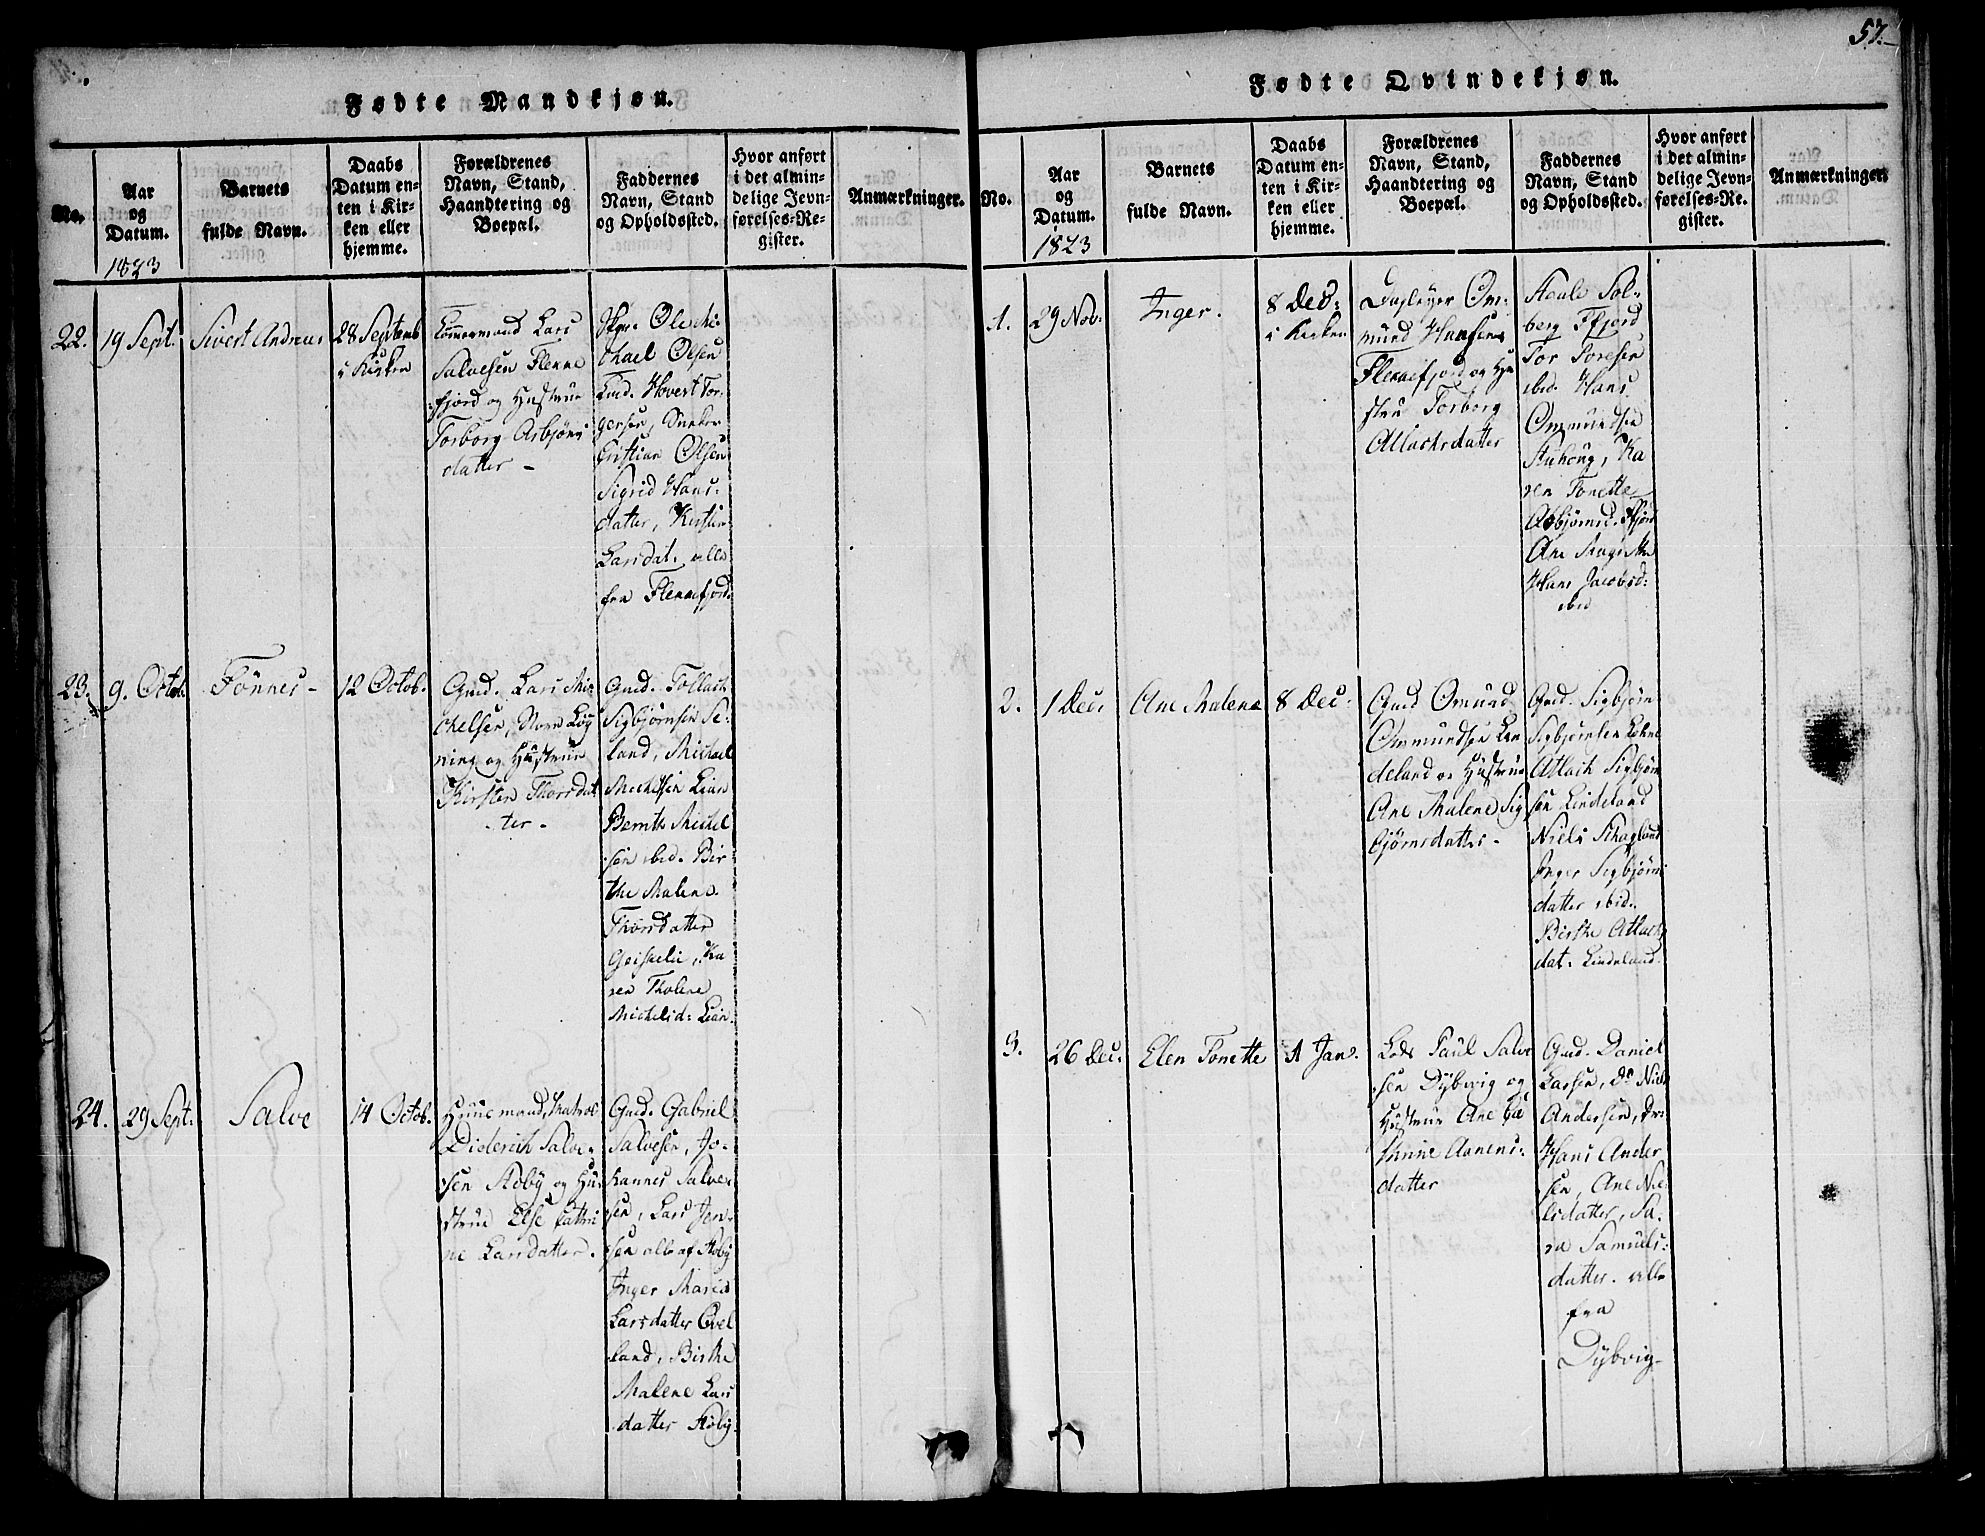 57.
Fødte Mandkjøn.
No.
Aar
og
Datum.
1823
Barnets
fulde Navn.
Daabs
Datum en-
ten i Kir-
ken eller
hjemme.
Forældrenes
Navn, Stand,
Haandtering og
Boepæl.
Faddernes
Navn, Stand
og Opholdssted.
Hvor anført
i det almin-
delige Jevn-
førelses-Re-
gister.
Anmærkninger.
22.
19 Sept.
Sivert Andreas
28 Septemb
i Kirken
Lars
Salvesen Flekke
fjord og Hustrue
Torborg Asbjørns
datter -
Ole Mi-
chael Olsen
Hovert Tor-
gersen,
Cristian Olsen
Sigrid Hans-
datter, Kirsten
Larsdat. alle
fra Flekkefjord.
23.
9. Octob.
Tønnes -
12 Octob.
Gmd. Lars Mi-
chelsen,
ning og Hustrue
Kirsten Thorsdat
- ter -
Gmd. Tollach
Sigbjørnsen Se-
land, Michael
Michelsen Lian
Bernth Michel
sen ibd. Bir-
the Malene
Thorsdatter
Ka
ren Tholene
Michelsd: Lian.
24.
29 Sept.
Salve
14 Octob.
Huusmand, Matros
Diderich Salve-
sen Aaby og Hu-
strue Else Cathri
ne Larsdatter.
Gmd. Gabriel
Salvesen, Jo-
hannes Salve-
sen, Lars Jen-
sen alle af
Inger Maria
Larsdatter
land, Birthe
Malene Lars
datter
Fødte Qvindekjøn.
No.
Aar
og
Datum.
1823
Barnets
fulde Navn.
Daabs
Datum en-
ten i Kir-
ken eller
hjemme.
Forældrenes
Navn, Stand,
Haandtering og
Boepæl.
Faddernes
Navn, Stand
og Opholdssted.
Hvor anført
i det almin-
delige Jevn-
førelses-Re-
gister.
Anmærkninger.
1.
29 Nov.
Inger.
8 Dec:
i Kirken
Dagleyer Om-
mund Hansen
Flekkefjord og Hu
strue Torborg
Atlachsdatter
Sol-
berg Ffjord
Tor Toresen
ibd. Hans
Ommundsen
Ka
ren Tonette
Asbjørnsd. Ffjord
Ane
Hans Jacobsd:
ibid
2.
1 Dec.
Ane Malene
8 Dec:
Gmd Omund
Ommundsen Lin
deland og Hustrue
Ane Malene Sig
bjørnsdatter -
Gmd. Sigbjørn
Sigbjørnsen
Atlach Sigbjørn
sen Lindeland
Niels
Inger Sigbjørns
datter ibid.
Birthe Atlachs
dat. Lindeland.
3.
26 Dec.
Elen Tonette
1 Jan.
Lods Paul Salve
sen Dybvig og
Hustrue Ane Ca
thrine Aanens-
datter
Gmd. Daniel
Larsen, Do Niels
Andersen, Do
Hans Ander
sen, Ane Nie-
lsdatter, Sa-
ra Samuels-
datter. alle
fra
Dybvig